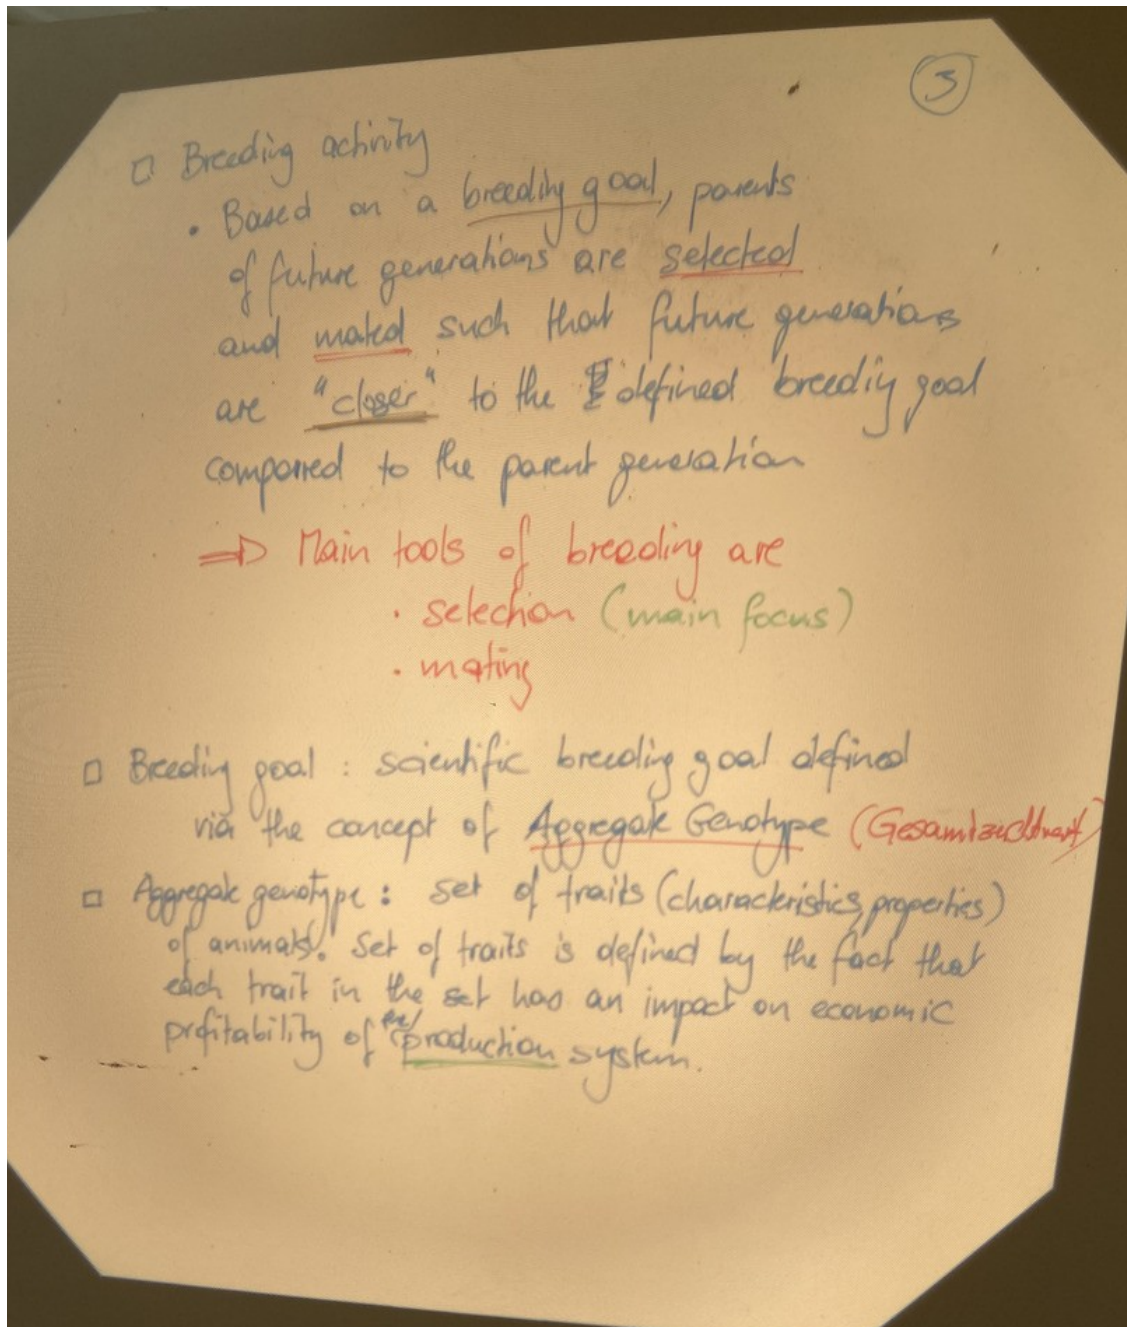 3
□ Breeding activity
• Based on a breeding goal, parents
of future generations are selected
and mated such that future generations
are "closer" to the defined breeding goal
compared to the parent generation
⇒ Main tools of breeding are
• selection (main focus)
• mating
□ Breeding goal : scientific breeding goal defined
via the concept of Aggregate Genotype (Gesamtzuchtwert)
□ Aggregate genotype : set of traits (characteristics, properties)
of animals. Set of traits is defined by the fact that
each trait in the set has an impact on economic
profitability of production system.